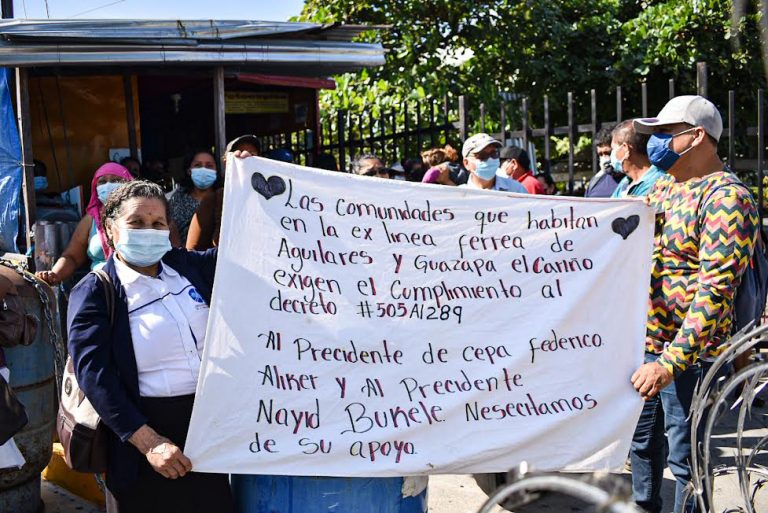 Las comunidades que habitan
en la ex linea ferrea de
Aguilares y Guazapa el Cariño
exigen el Cumplimiento al
decreto #505Al289
Al Precidente de cepa federico.
Aliker y Al Precidente
Nayid Bukele. Nesecitamos
de su apoyo.